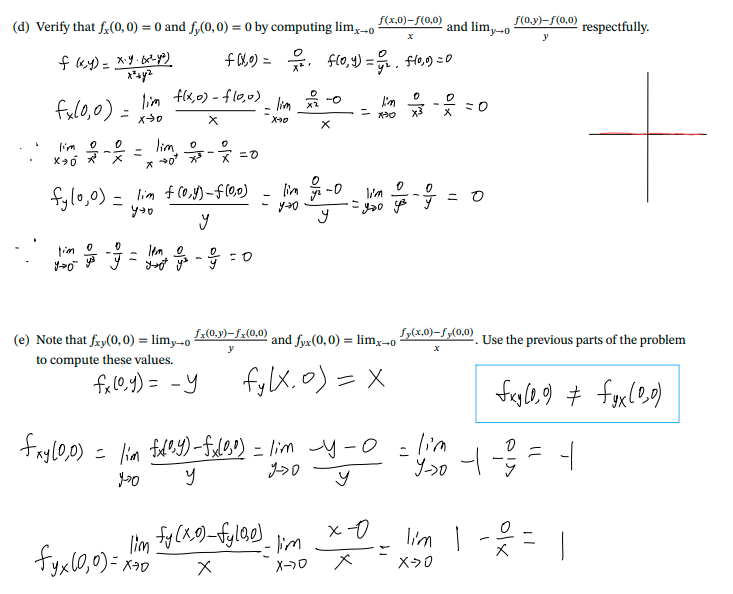 (d) Verify that fₓ(0,0) = 0 and f_y(0,0) = 0 by computing lim_{x→0} (f(x,0)−f(0,0))/x and lim_{y→0} (f(0,y)−f(0,0))/y respectively.
f(x,y) = x·y·(x²-y²)/(x²+y²)   f(x,0) = 0/x², f(0,y) = 0/y², f(0,0) = 0
fₓ(0,0) = lim_{x→0} (f(x,0) - f(0,0))/x = lim_{x→0} (0/x² - 0)/x = lim_{x→0} 0/x³ - 0/x = 0
∵ lim_{x→0⁻} 0/x³ - 0/x = lim_{x→0⁺} 0/x³ - 0/x = 0
f_y(0,0) = lim_{y→0} (f(0,y) - f(0,0))/y = lim_{y→0} (0/y² - 0)/y = lim_{y→0} 0/y³ - 0/y = 0
∵ lim_{y→0⁻} 0/y³ - 0/y = lim_{y→0⁺} 0/y³ - 0/y = 0
(e) Note that f_{xy}(0,0) = lim_{y→0} (fₓ(0,y)−fₓ(0,0))/y and f_{yx}(0,0) = lim_{x→0} (f_y(x,0)−f_y(0,0))/x. Use the previous parts of the problem
to compute these values.
fₓ(0,y) = -y   f_y(x,0) = x
f_{xy}(0,0) ≠ f_{yx}(0,0)
f_{xy}(0,0) = lim_{y→0} (fₓ(0,y) - fₓ(0,0))/y = lim_{y→0} (-y - 0)/y = lim_{y→0} -1 - 0/y = -1
f_{yx}(0,0) = lim_{x→0} (f_y(x,0) - f_y(0,0))/x = lim_{x→0} (x - 0)/x = lim_{x→0} 1 - 0/x = 1